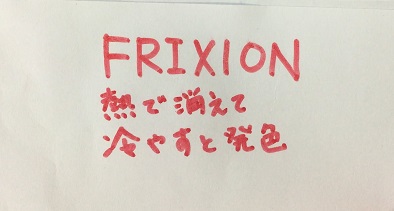 FRIXION
熱で消えて
冷やすと発色